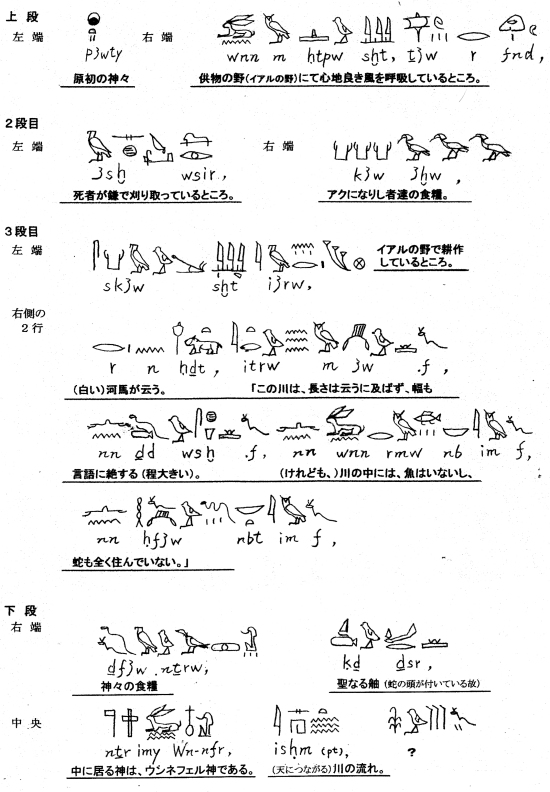 上段
左端
p3wty
原初の神々
右端
wnn m ḥtpw sḫt, ṯ3w r fnd,
供物の野(イアルの野)にて心地良き風を呼吸しているところ。
2段目
左端
3sḫ wsir,
死者が鎌で刈り取っているところ。
右端
k3w 3ḫw,
アクになりし者達の食糧。
3段目
左端
sk3w sḫt i3rw,
イアルの野で耕作
しているところ。
右側の
2行
r n ḥḏt, itrw m 3w .f,
(白い)河馬が云う。 「この川は、長さは云うに及ばず、幅も
nn ḏd wsḫ .f, nn wnn rmw nb im f,
言語に絶する(程大きい)。 (けれども、)川の中には、魚はいないし、
nn ḥf3w nbt im f,
蛇も全く住んでいない。」
下段
右端
ḏf3w nṯrw,
神々の食糧
kd ḏsr,
聖なる舳(蛇の頭が付いている故)
中央
nṯr imy Wn-nfr,
中に居る神は、ウシネフェル神である。
isḥm (pt),
(天につながる)川の流れ。
?